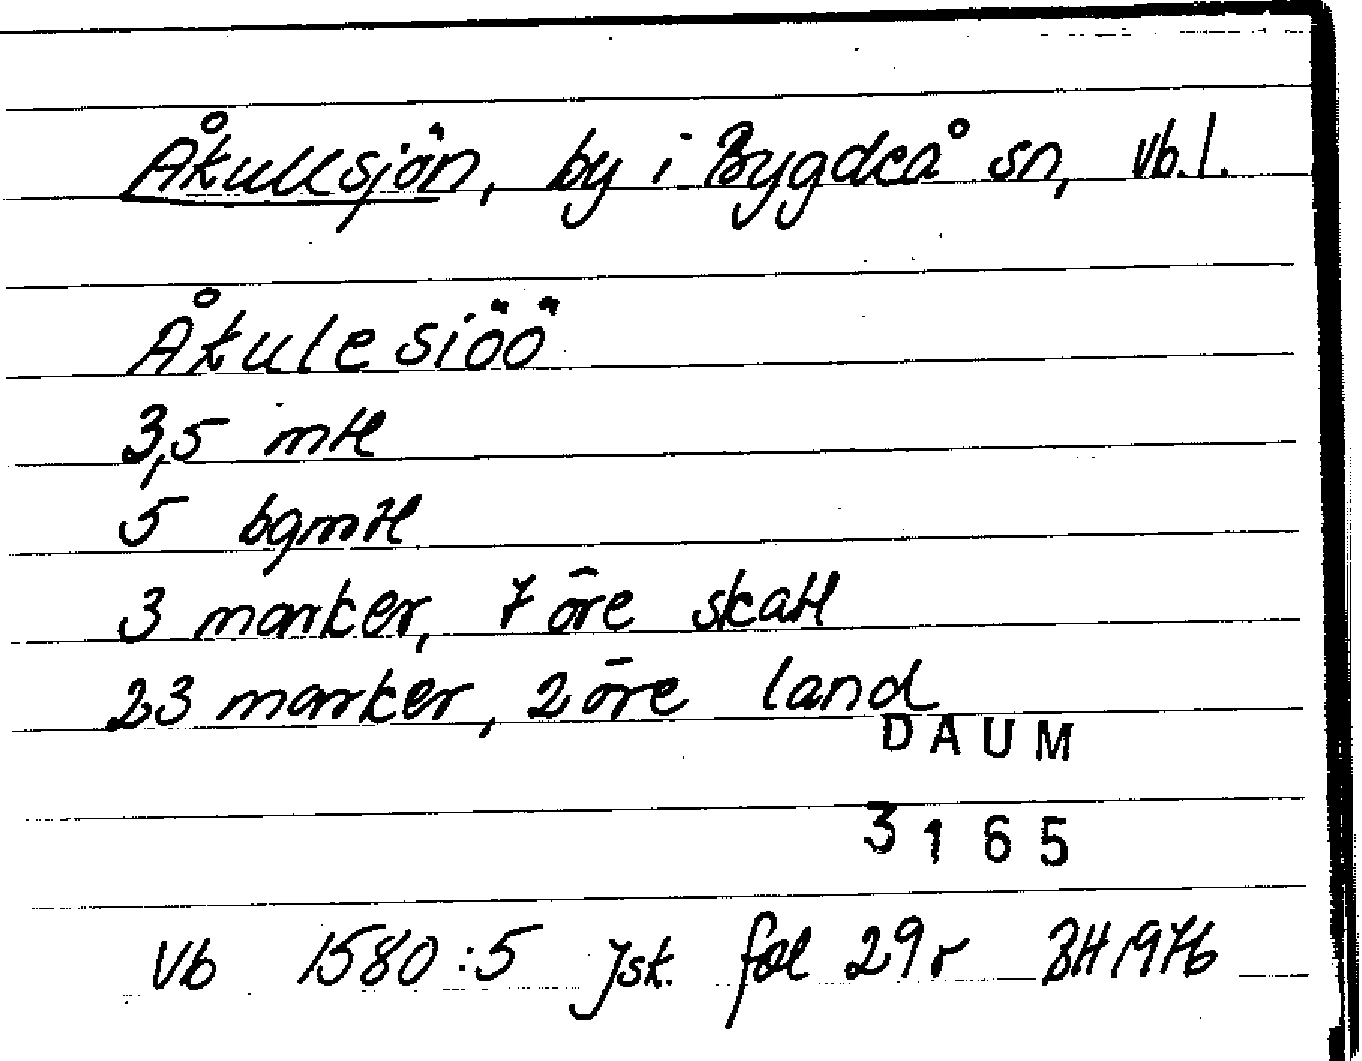 Åkullsjön, by i Bygdeå sn, Vb.l.
Åkulesiöö
3,5 mtl
5 bgmtl
3 marker, 7 öre skatt
23 marker, 2 öre land
DAUM
3165
Vb 1580:5 Jsk. fol 29r BH 1976